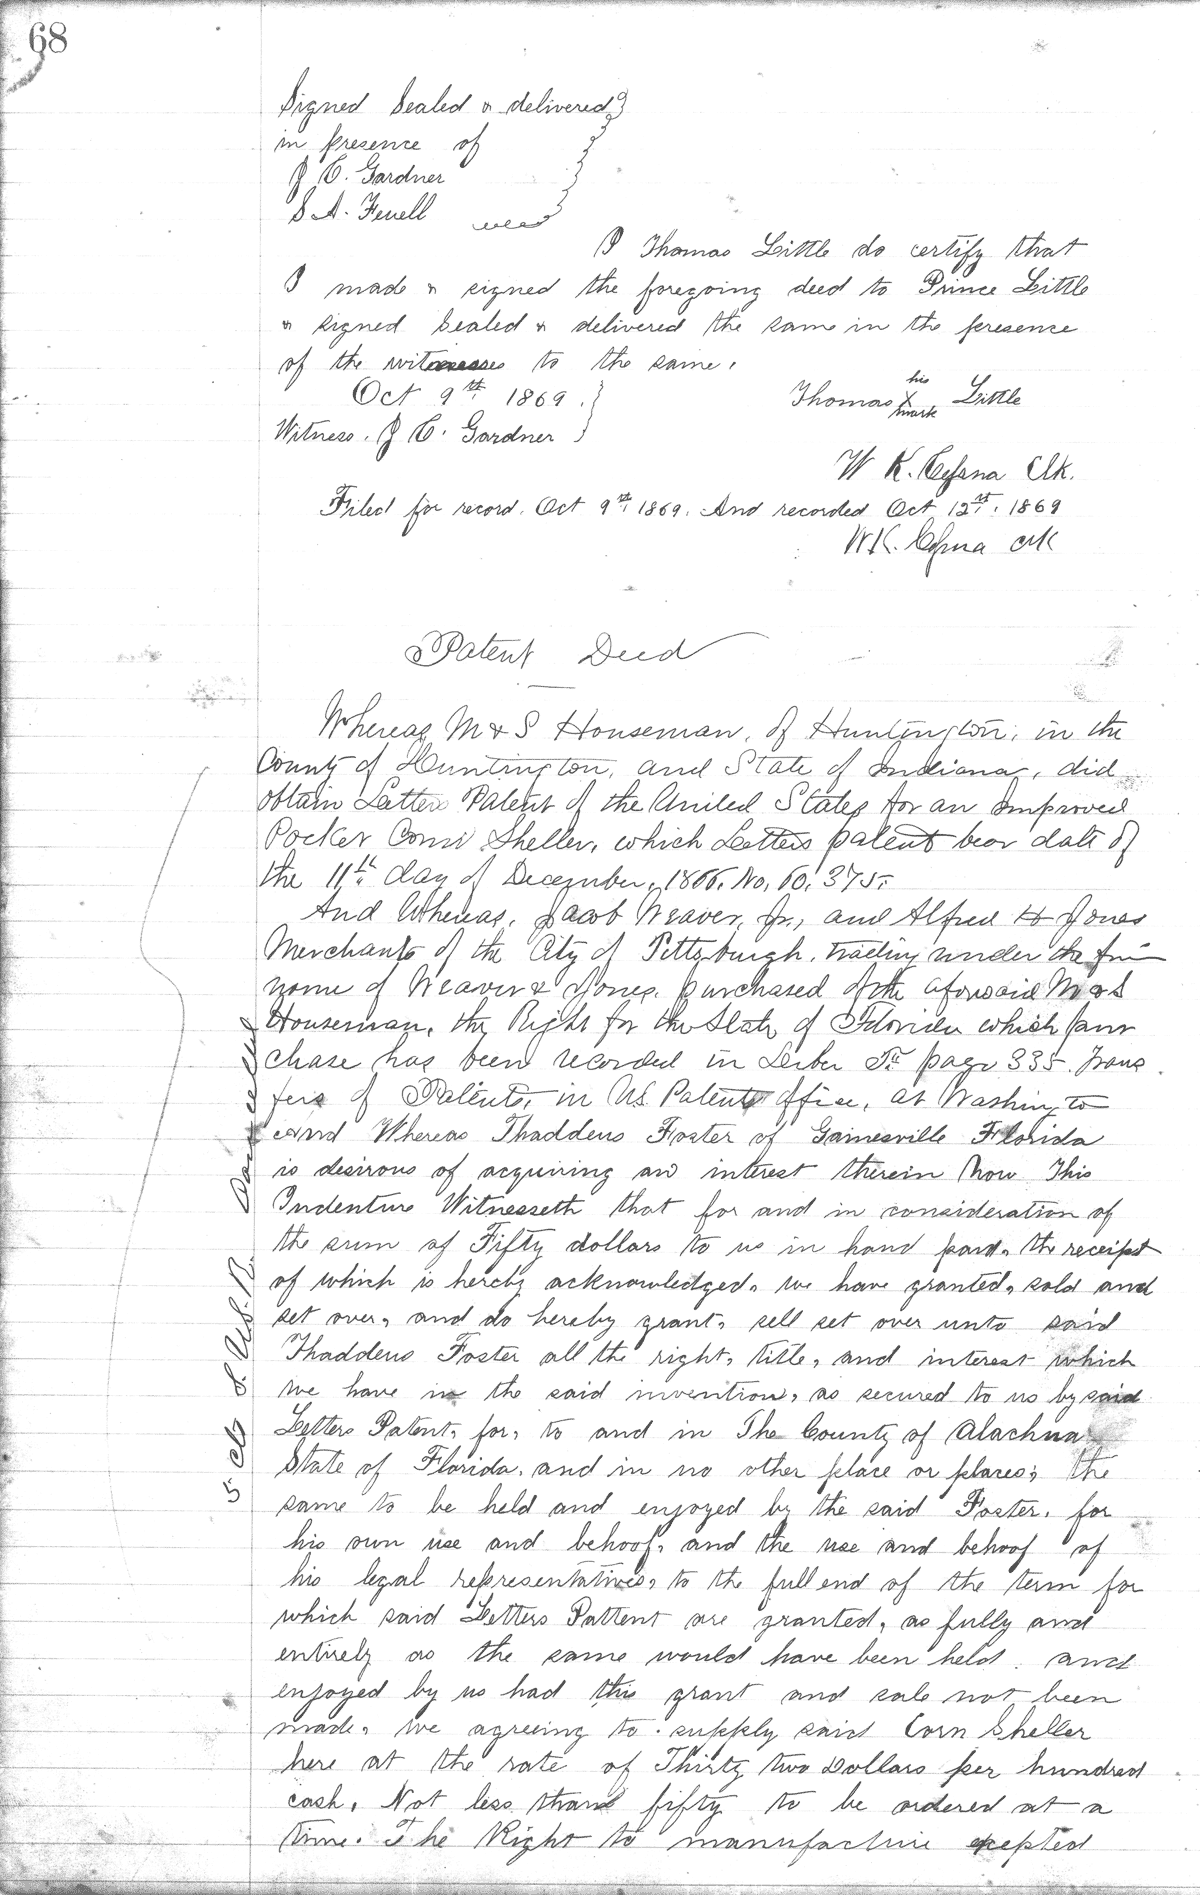 68
Signed Sealed & delivered
in presence of
J C. Gardner
S A. Fenell
I Thomas Little do certify that
I made & signed the foregoing deed to Prince Little
& signed Sealed & delivered the same in the presence
of the witnesses to the same.
Oct 9th 1869.
his
Thomas X Little
mark
Witness. J C. Gardner
W K. Cessna Clk.
Filed for record. Oct 9th 1869. And recorded Oct 12th. 1869
W.K. Cessna Clk
Patent Deed
Whereas M & S Houseman, of Huntington, in the
County of Huntington, and State of Indiana, did
obtain Letters Patent of the United States for an Improved
Pocket Corn Sheller, which Letters patent bear date of
the 11th day of December, 1866. No. 60.375.
And Whereas, Jacob Weaver, Jr., and Alfred H Jones
Merchants of the City of Pittsburgh, trading under the firm
name of Weaver & Jones. purchased of the aforesaid M & S
Houseman, the Right for the State of Florida which pur
chase has been recorded in Liber page 335. Trans
fers of Patents, in U.S. Patent office, at Washington
And Whereas Thaddeus Foster of Gainesville Florida
is desirous of acquiring an interest therein Now This
Indenture Witnesseth that for and in consideration of
the sum of Fifty dollars to us in hand paid, the receipt
of which is hereby acknowledged, we have granted, sold and
set over, and do hereby grant, sell set over unto said
Thaddeus Foster all the right, title, and interest which
we have in the said invention, as secured to us by said
Letters Patent, for, to and in The County of Alachua
State of Florida, and in no other place or places; the
same to be held and enjoyed by the said Foster, for
his own use and behoof, and the use and behoof of
his legal representatives, to the full end of the term for
which said Letters Pattent are granted, as fully and
entirely as the same would have been held. and
enjoyed by us had this grant and sale not been
made, we agreeing to supply said Corn Sheller
here at the rate of Thirty two Dollars per hundred
cash. Not less than fifty to be ordered at a
time. The Right to manufacture excepted
5 cts I.R.